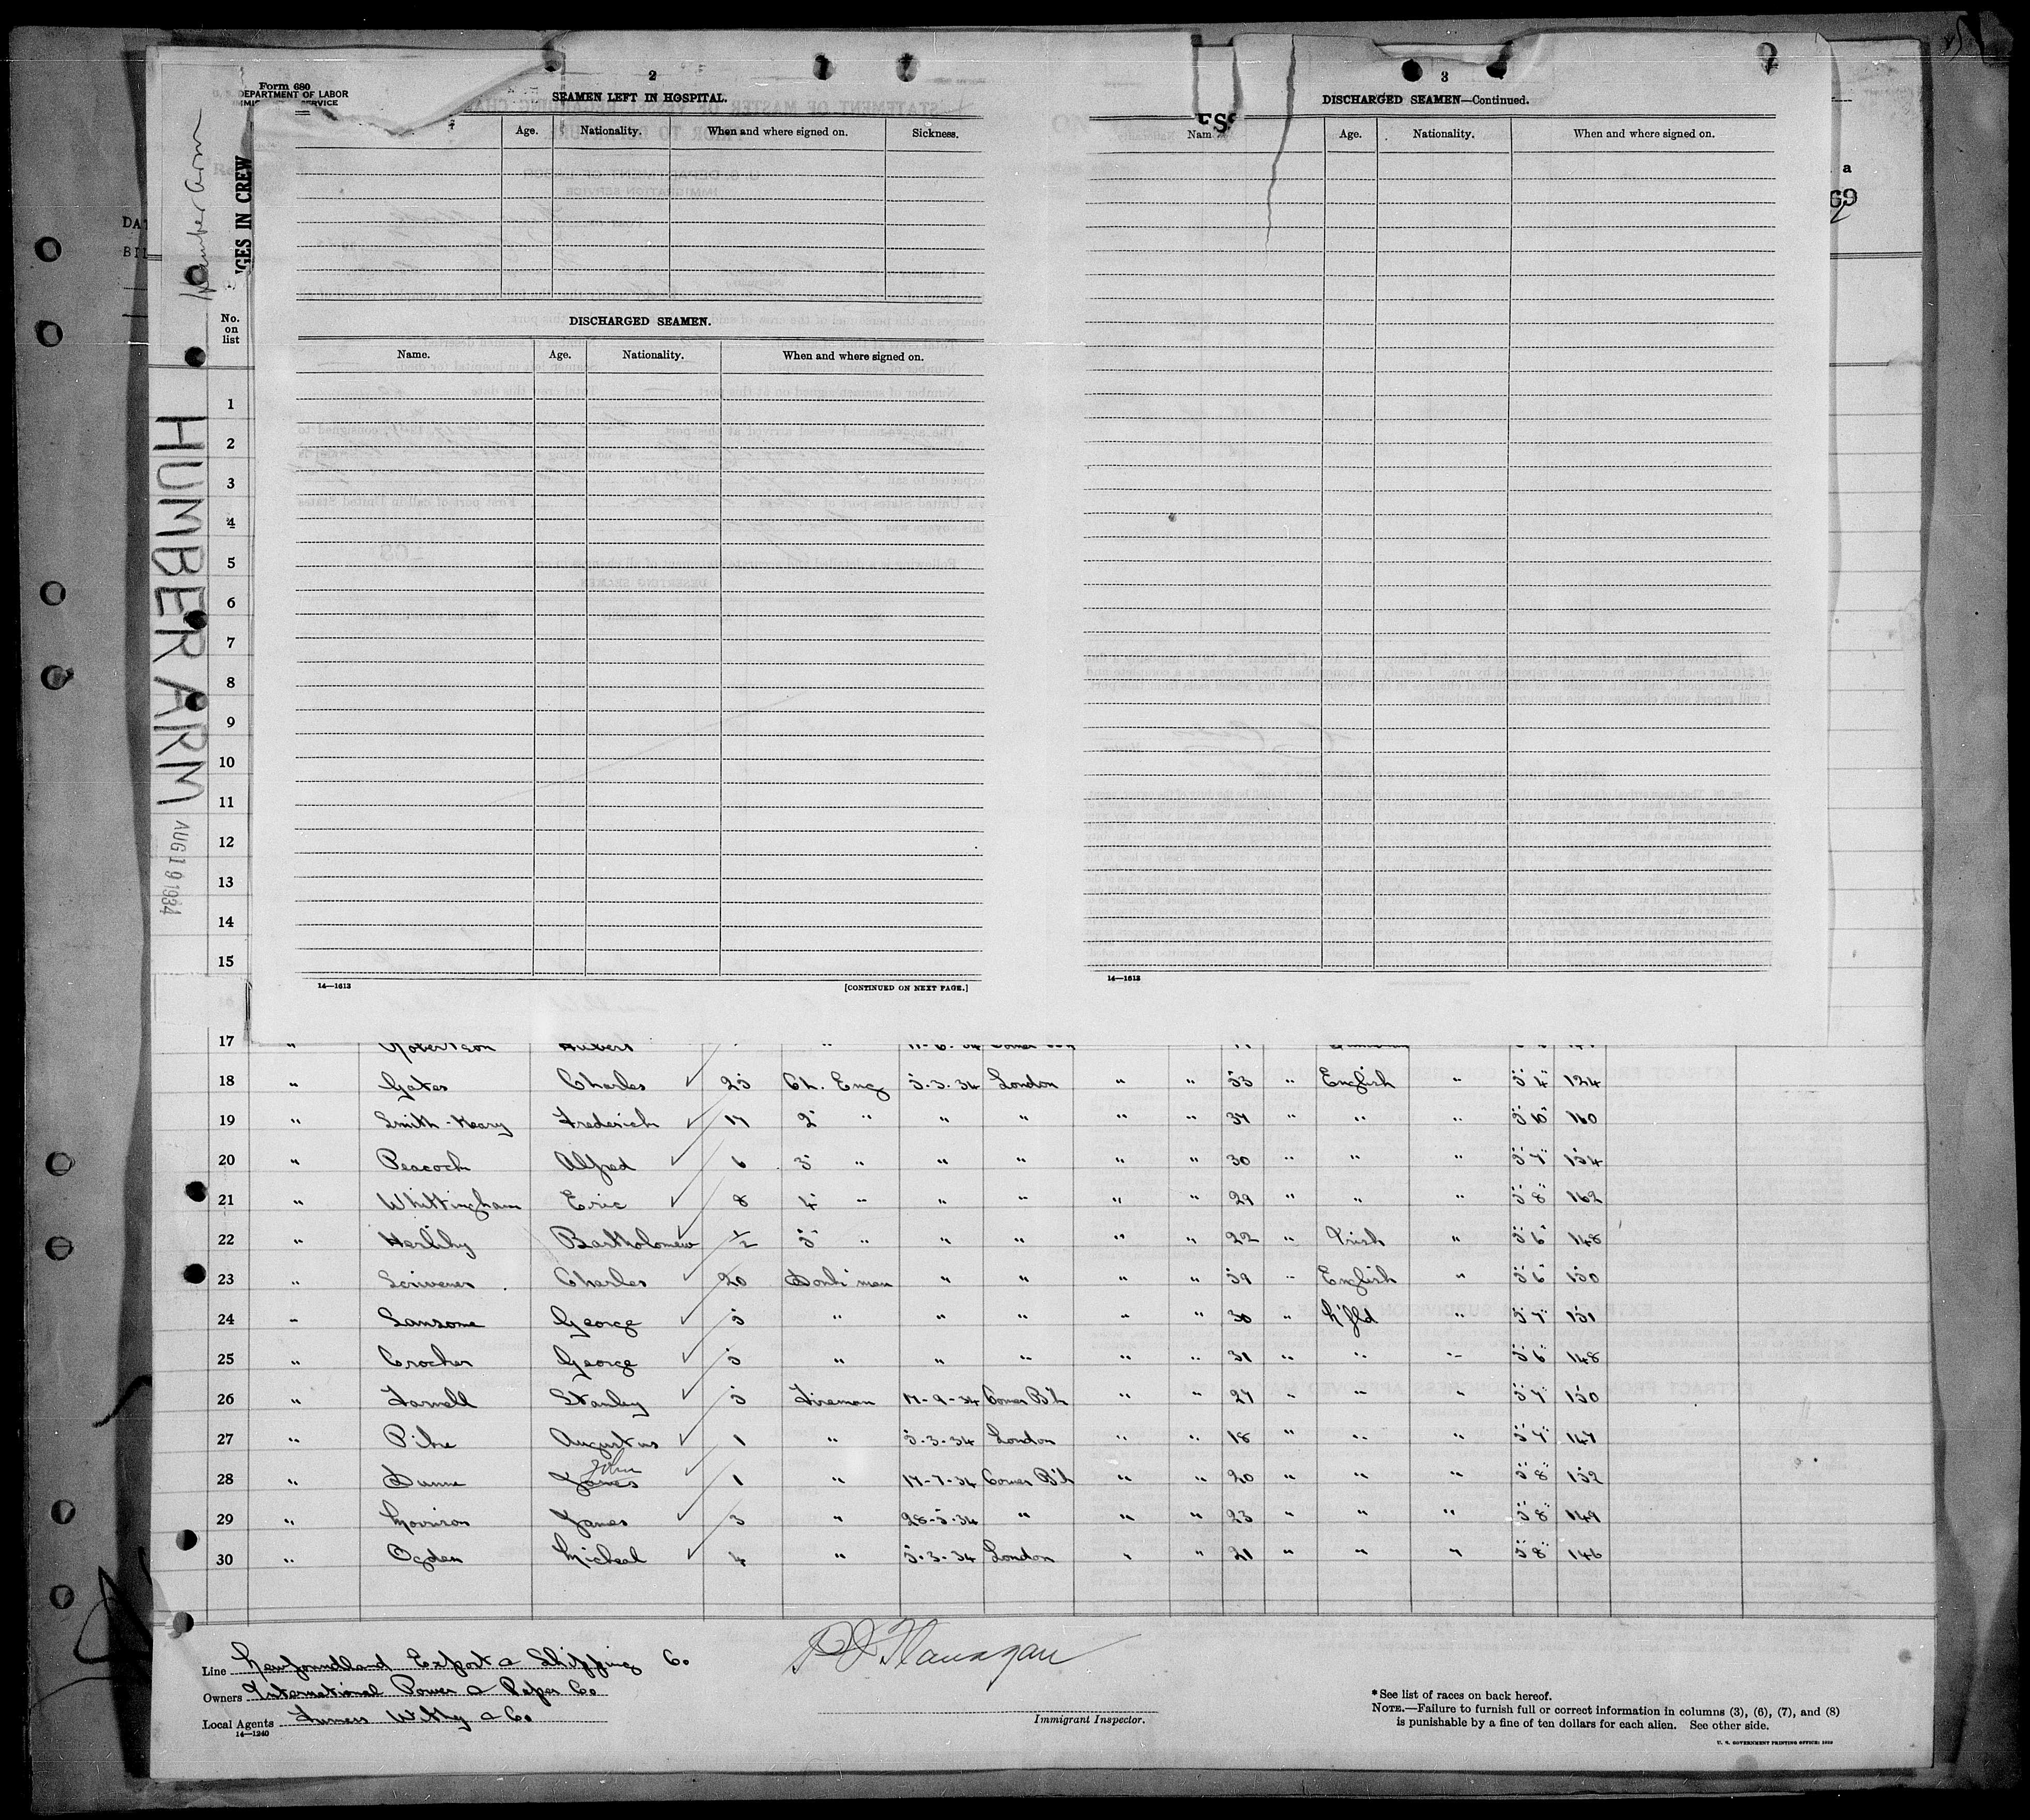 Form 680
DEPARTMENT OF LABOR
2
SEAMEN LEFT IN HOSPITAL.
Age. Nationality. When and where signed on. Sickness.
DISCHARGED SEAMEN.
Name. Age. Nationality. When and where signed on.
14—1613 [CONTINUED ON NEXT PAGE.]
3
DISCHARGED SEAMEN—Continued.
Nam Age. Nationality. When and where signed on.
14—1613
a
69
DAT
BIL
Humber Arm
GES IN CREW
HUMBER ARM
AUG 19 1934
No. on list
1
2
3
4
5
6
7
8
9
10
11
12
13
14
15
17 " Robertson Hubert
18 " Gates Charles ✓ 25 Ch. Eng 5.3.34 London " " 53 " English " 5'4" 124
19 " Smith-Keary Frederick ✓ 17 2" " " " " " 37 " " " 5'10" 160
20 " Peacock Alfred ✓ 6 3" " " " " " 30 " " " 5'7" 154
21 " Whittingham Eric ✓ 8 4" " " " " " 29 " " " 5'8" 162
22 " Herlihy Bartholomew ✓ 1/2 5" " " " " " 22 " Irish " 5'6" 148
23 " Scrivener Charles ✓ 20 Donk'man " " " " 59 " English " 5'6" 150
24 " Sansome George ✓ 5 " " " " " 30 " N'fld " 5'7" 151
25 " Crocker George ✓ 5 " " " " " 31 " " " 5'6" 148
26 " Farnell Stanley ✓ 5 Fireman 17-9-34 Corner B'k " " 27 " " " 5'7" 150
27 " Pike Augustus ✓ 1 " 5.3.34 London " " 18 " " " 5'7" 147
28 " Dunne James John ✓ 1 " 17-7-34 Corner B'k " " 20 " " " 5'8" 152
29 " Morrison James ✓ 3 " 28-5-34 " " " 23 " " " 5'8" 149
30 " Ogden Micheal ✓ 4 " 5.3.34 London " " 21 " " " 5'8" 146
Line Newfoundland Export & Shipping Co.
Owners International Power & Paper Co
Local Agents Furness Withy & Co
14—1240
P J Flanagan
Immigrant Inspector.
* See list of races on back hereof.
NOTE.—Failure to furnish full or correct information in columns (3), (6), (7), and (8)
is punishable by a fine of ten dollars for each alien. See other side.
U. S. GOVERNMENT PRINTING OFFICE: 1929